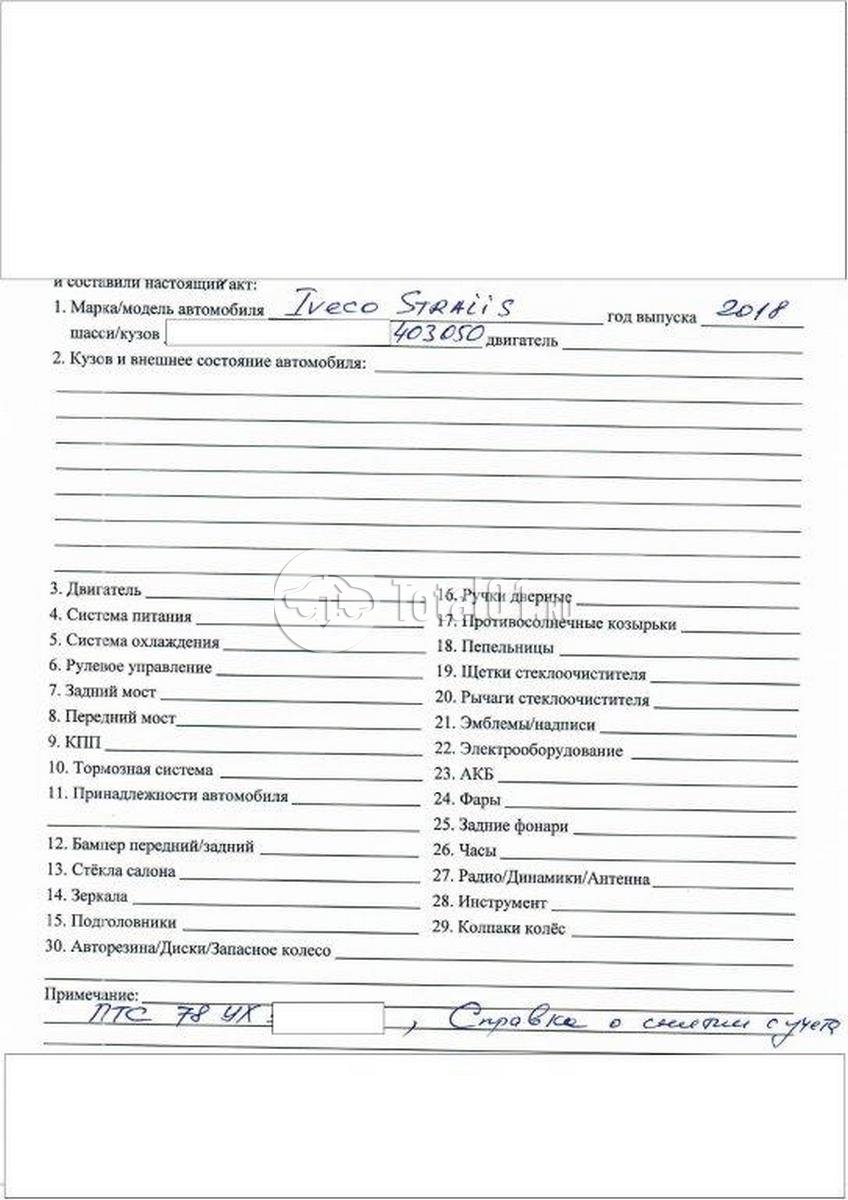 и составили настоящий акт:
1. Марка/модель автомобиля Iveco Stralis год выпуска 2018
шасси/кузов 403050 двигатель
2. Кузов и внешнее состояние автомобиля:
3. Двигатель
4. Система питания
5. Система охлаждения
6. Рулевое управление
7. Задний мост
8. Передний мост
9. КПП
10. Тормозная система
11. Принадлежности автомобиля
12. Бампер передний/задний
13. Стёкла салона
14. Зеркала
15. Подголовники
16. Ручки дверные
17. Противосолнечные козырьки
18. Пепельницы
19. Щетки стеклоочистителя
20. Рычаги стеклоочистителя
21. Эмблемы/надписи
22. Электрооборудование
23. АКБ
24. Фары
25. Задние фонари
26. Часы
27. Радио/Динамики/Антенна
28. Инструмент
29. Колпаки колёс
30. Авторезина/Диски/Запасное колесо
Примечание:
ПТС 78 УХ , Справка о снятии с учета
Total01.ru